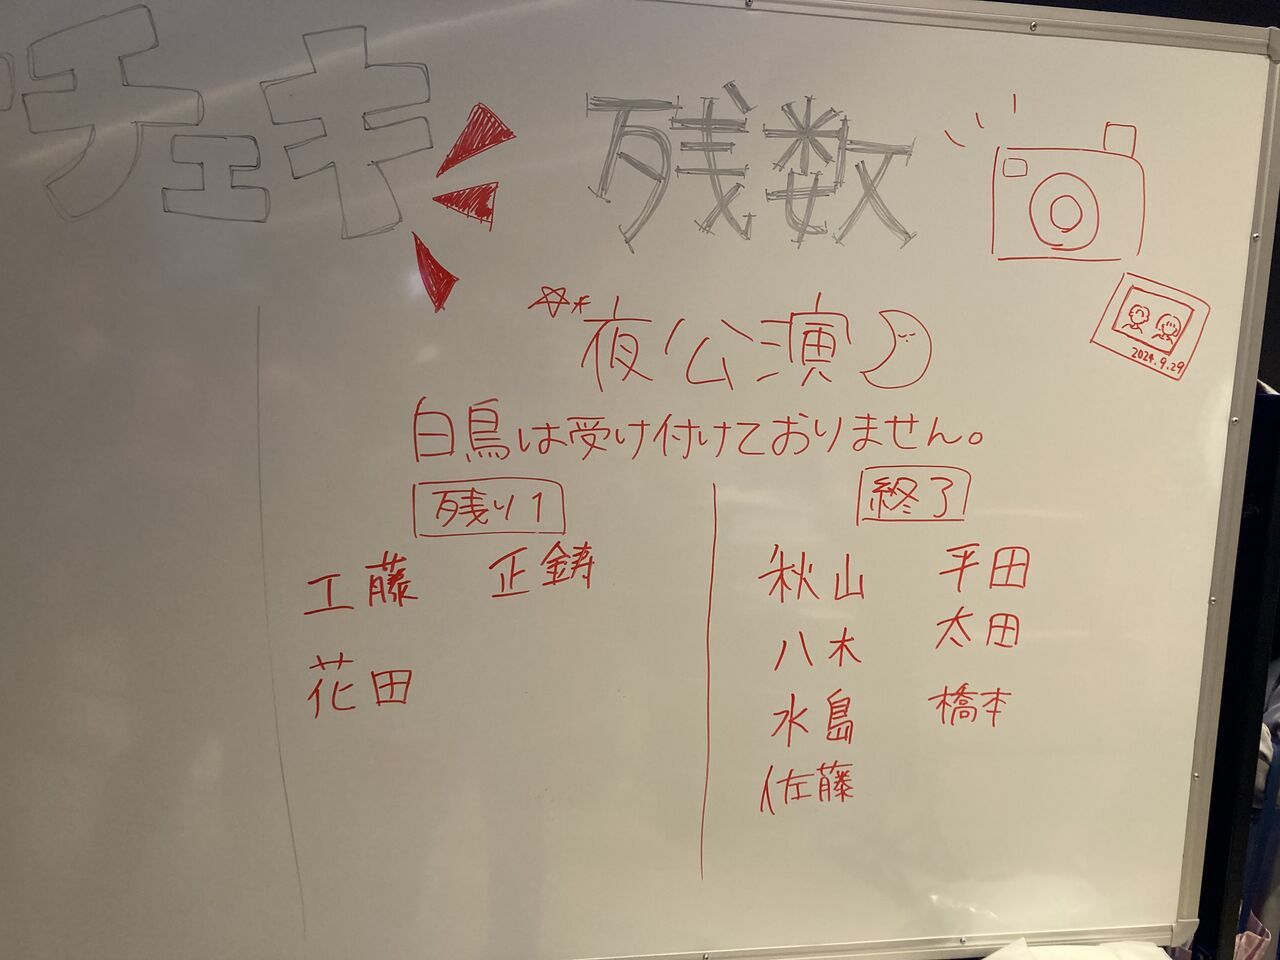 チェキ
残数
夜公演
2024.9.29
白鳥は受け付けておりません。
残り1
工藤 正鋳
花田
終了
秋山 平田
八木 太田
水島 橋本
佐藤